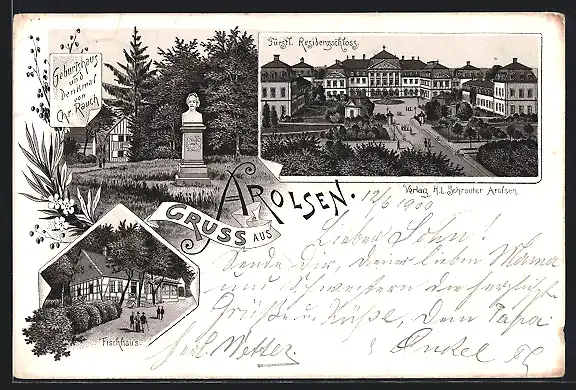 Geburtshaus
und
Denkmal
von
Chr. Rauch
Fürstl. Residenzschloss.
Verlag H.L. Schröter Arolsen.
GRUSS AUS
AROLSEN.
Fischhaus.
12/6 1900
Lieber Sohn!
Sende Dir, deiner lieben Mama
und Schwestern die herzlichst
Grüße u Küße, Dein Papa
Onkel